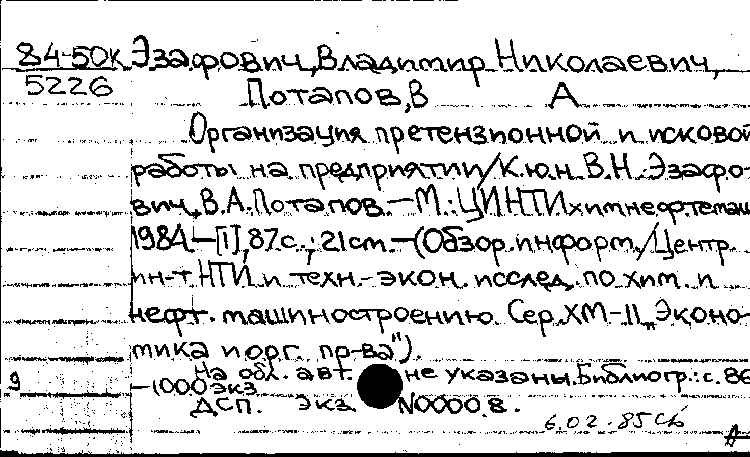 84-50К Эзафрович, Владимир Николаевич,
5226 Потапов, В А
Организация претензионной и исковой
работы на предприятии/К.ю.н. В.Н. Эзафро-
вич, В.А. Потапов. — М.: ЦИНТИхимнефтемаш
1984. — [1], 87с.; 21см. — (Обзор. информ./Центр.
ин-т НТИ и техн.-экон. исслед. по хим. и
нефт. машиностроению. Сер. ХМ-11 „Эконо-
мика и орг. пр-ва").
На обл. авт. не указаны. Библиогр.: с. 86
9 — 1000 экз.
ДСП. Экз. N00008.
6.02.85